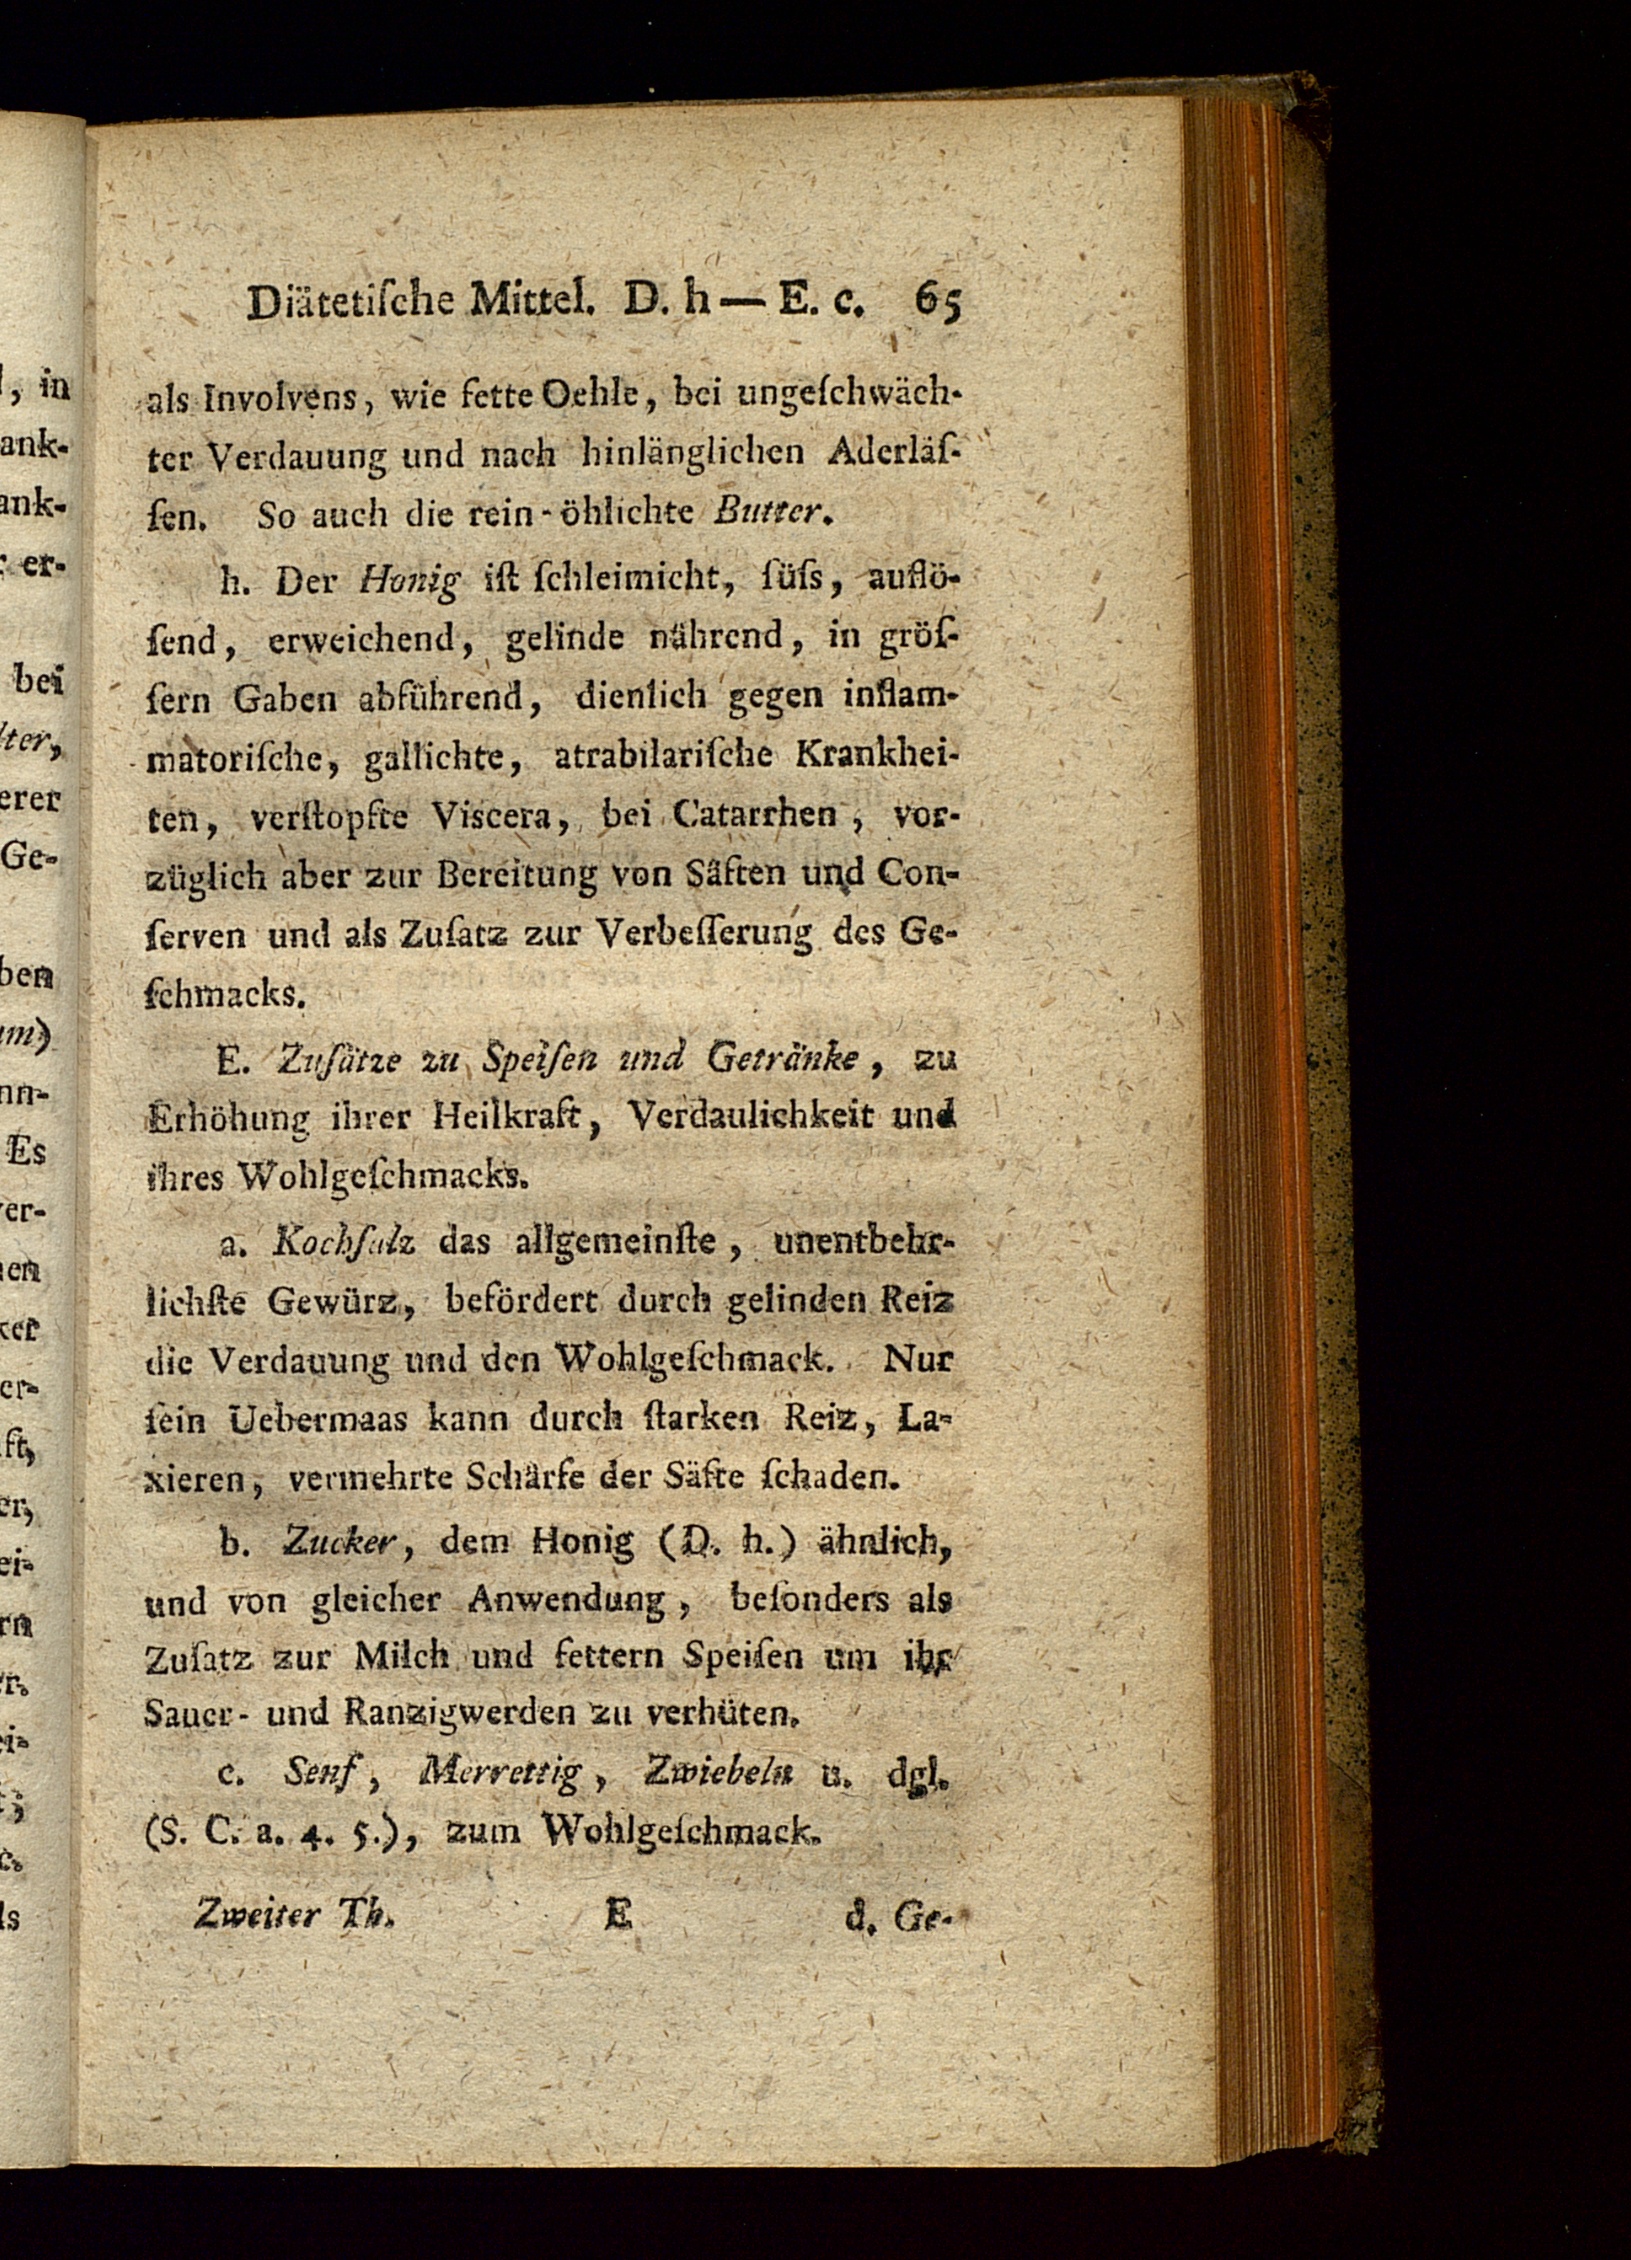 Diätetiſche Mittel. D. h — E. c. 65
als Involvens, wie fette Oehle, bei ungeſchwäch-
ter Verdauung und nach hinlänglichen Aderläſ-
ſen. So auch die rein-öhlichte Butter.
h. Der Honig iſt ſchleimicht, ſüſs, auflö-
ſend, erweichend, gelinde nährend, in gröſ-
ſern Gaben abführend, dienlich gegen inflam-
matoriſche, gallichte, atrabilariſche Krankhei-
ten, verſtopfte Viscera, bei Catarrhen, vor-
züglich aber zur Bereitung von Säften und Con-
ſerven und als Zuſatz zur Verbeſſerung des Ge-
ſchmacks.
E. Zuſätze zu Speiſen und Getränke, zu
Erhöhung ihrer Heilkraft, Verdaulichkeit und
ihres Wohlgeſchmacks.
a. Kochſalz das allgemeinſte, unentbehr-
lichſte Gewürz, befördert durch gelinden Reiz
die Verdauung und den Wohlgeſchmack. Nur
ſein Uebermaas kann durch ſtarken Reiz, La-
xieren, vermehrte Schärfe der Säfte ſchaden.
b. Zucker, dem Honig (D. h.) ähnlich,
und von gleicher Anwendung, beſonders als
Zuſatz zur Milch und fettern Speiſen um ihr
Sauer- und Ranzigwerden zu verhüten.
c. Senf, Merrettig, Zwiebeln u. dgl.
(S. C. a. 4. 5.), zum Wohlgeſchmack.
Zweiter Th. E d. Ge-